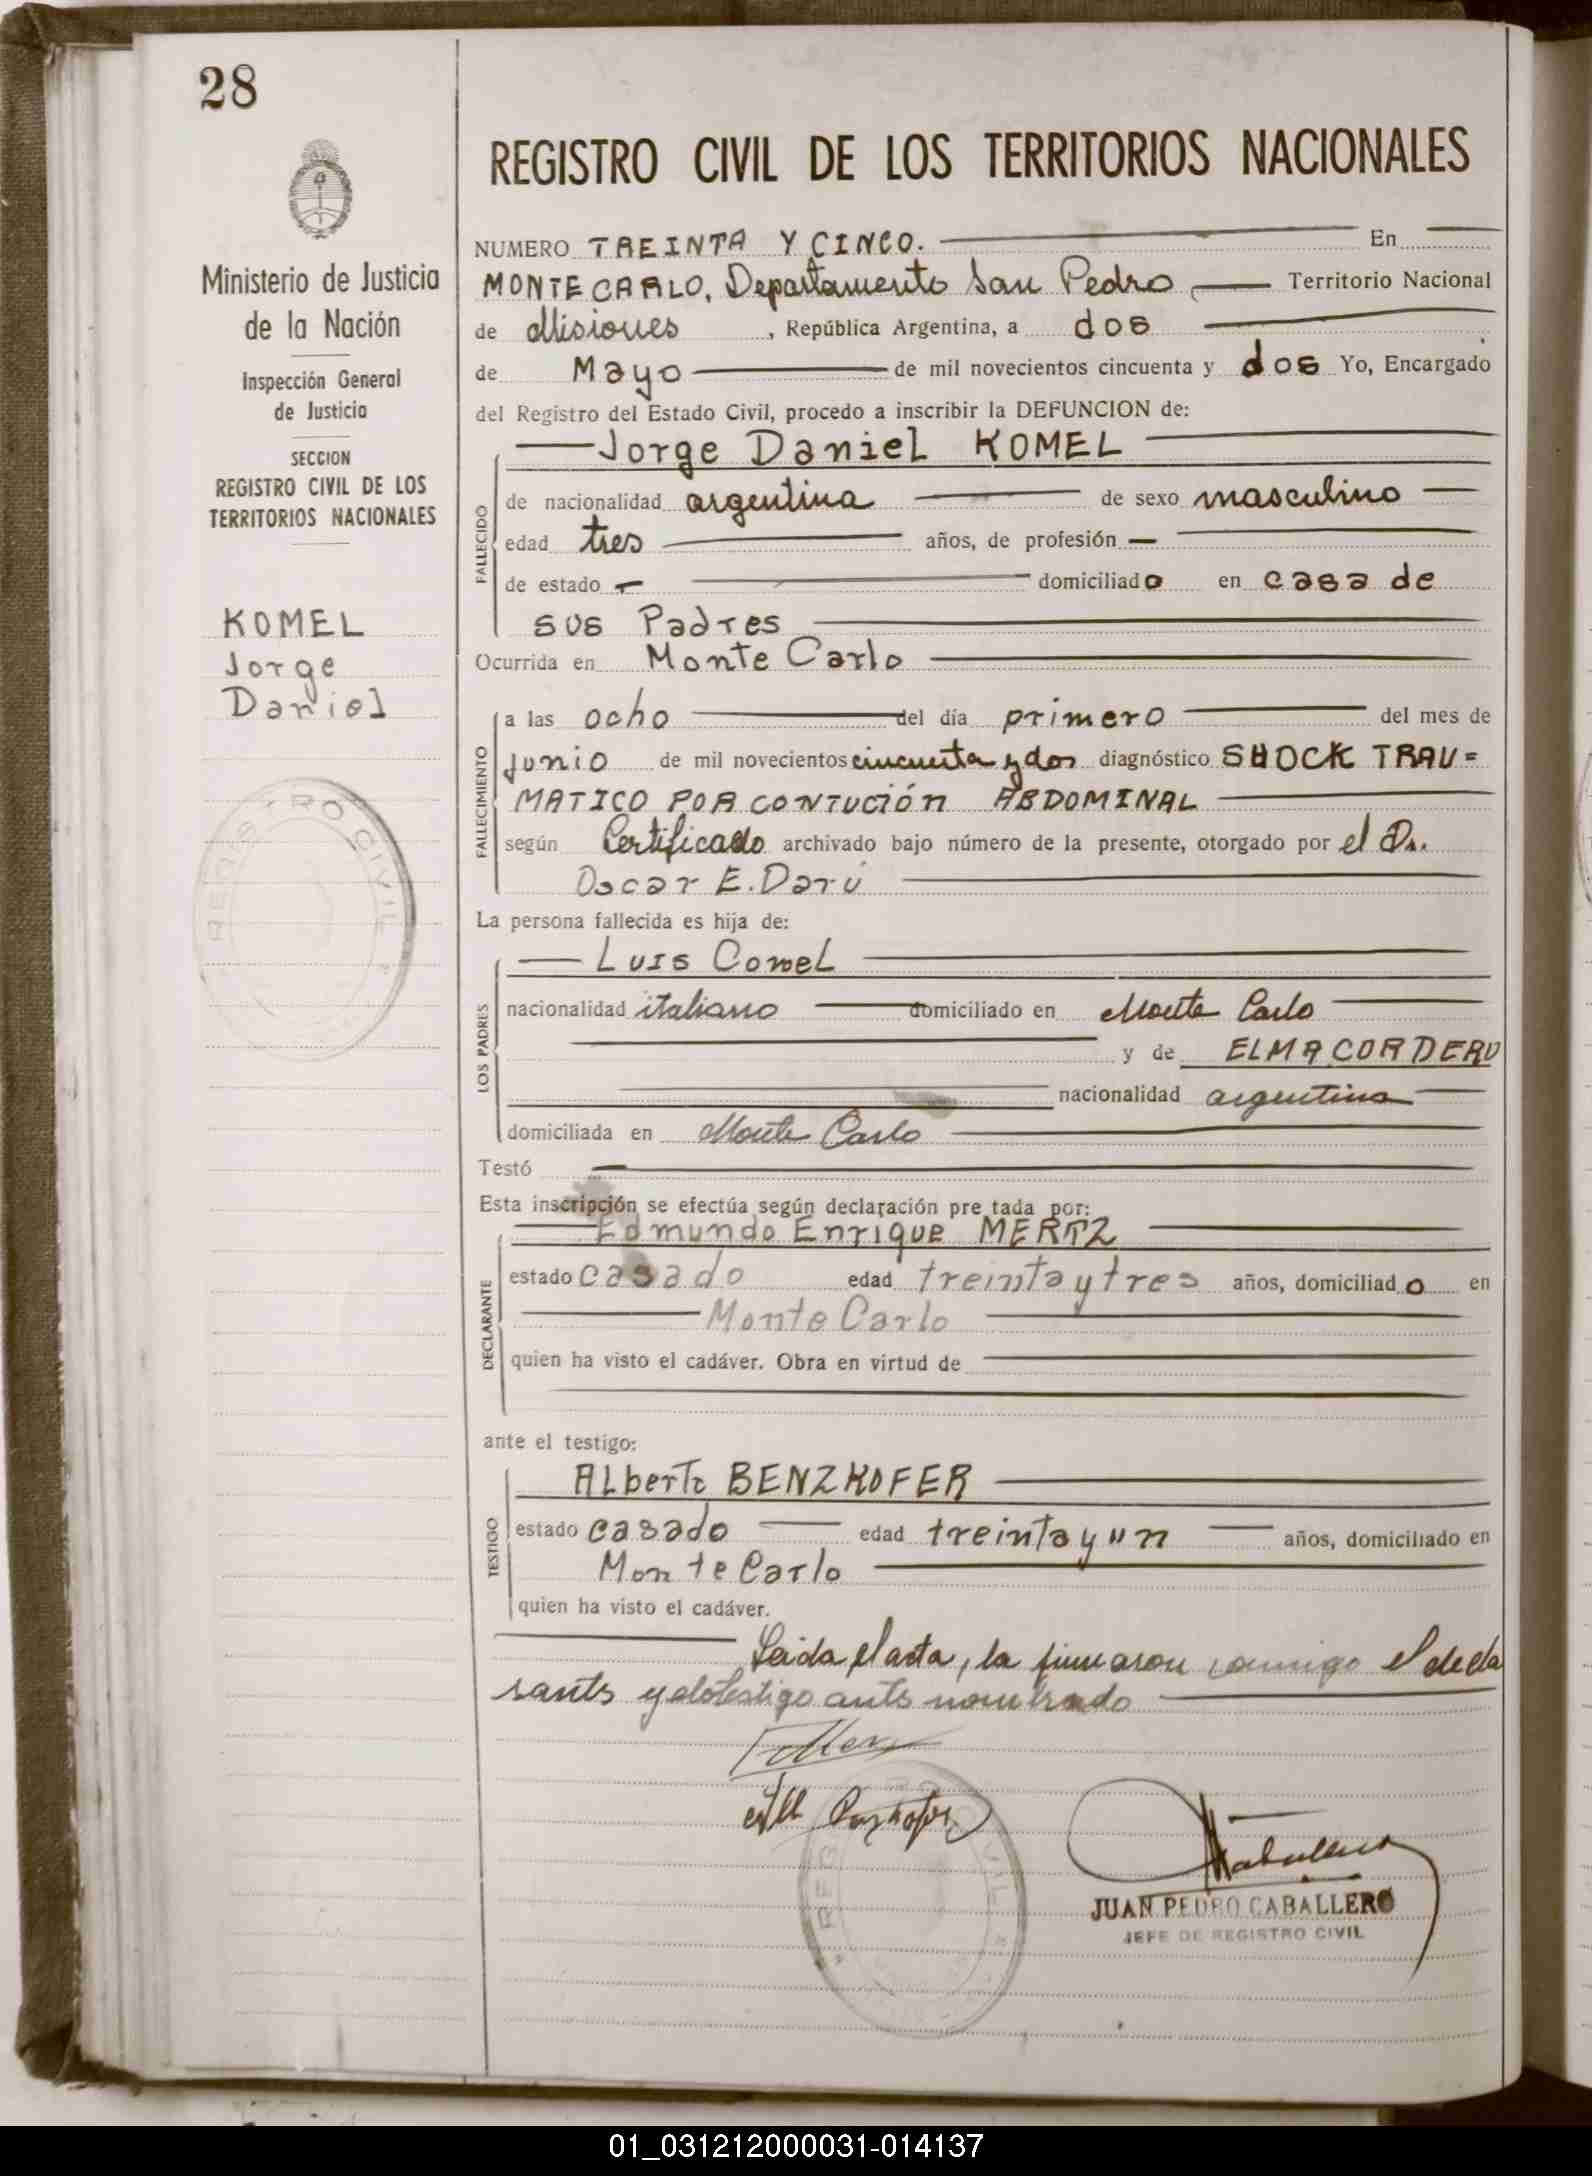 28
Ministerio de Justicia
de la Nación
Inspección General
de Justicia
SECCION
REGISTRO CIVIL DE LOS
TERRITORIOS NACIONALES
KOMEL
Jorge
Daniel
REGISTRO CIVIL
REGISTRO CIVIL DE LOS TERRITORIOS NACIONALES
NUMERO TREINTA Y CINCO. En
MONTECARLO, Departamento San Pedro Territorio Nacional
de Misiones, República Argentina, a dos
de Mayo de mil novecientos cincuenta y dos Yo, Encargado
del Registro del Estado Civil, procedo a inscribir la DEFUNCION de:
Jorge Daniel KOMEL
FALLECIDO
de nacionalidad argentina de sexo masculino
edad tres años, de profesión —
de estado — domiciliado en casa de
sus Padres
Ocurrida en Monte Carlo
FALLECIMIENTO
a las ocho del día primero del mes de
junio de mil novecientos cincuenta y dos diagnóstico SHOCK TRAU=
MATICO POR CONTUCIÓN ABDOMINAL
según Certificado archivado bajo número de la presente, otorgado por el Dr.
Oscar E. Darú
La persona fallecida es hija de:
LOS PADRES
Luis Comel
nacionalidad italiano domiciliado en Monte Carlo
y de ELMA CORDERO
nacionalidad argentina
domiciliada en Monte Carlo
Testó
Esta inscripción se efectúa según declaración pre tada por:
DECLARANTE
Edmundo Enrique MERTZ
estado casado edad treinta y tres años, domiciliado en
Monte Carlo
quien ha visto el cadáver. Obra en virtud de
ante el testigo:
TESTIGO
Alberto BENZHOFER
estado casado edad treinta y un años, domiciliado en
Monte Carlo
quien ha visto el cadáver.
Leida el acta, la firmaron conmigo el decla
rante y el testigo ante nombrado
REG CIVIL
JUAN PEDRO CABALLERO
JEFE DE REGISTRO CIVIL
01_031212000031-014137